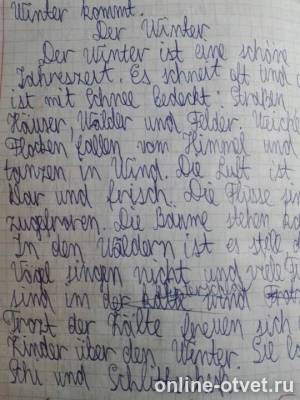 Winter kommt.
Der Winter
Der Winter ist eine schöne
Jahreszeit. Es schneit oft und
ist mit Schnee bedeckt: Straßen
Häuser, Wälder und Felder. Weiche
Flocken fallen vom Himmel und
tanzen in Wind. Die Luft ist
klar und frisch. Die Flüsse sin
zugefroren. Die Bäume stehen
In den Wäldern ist es still
Vögel singen nicht und viele
sind in
Trozt der Kälte freuen sich
Kinder über den Winter. Sie
Schi und Schlittschuh.
online-otvet.ru